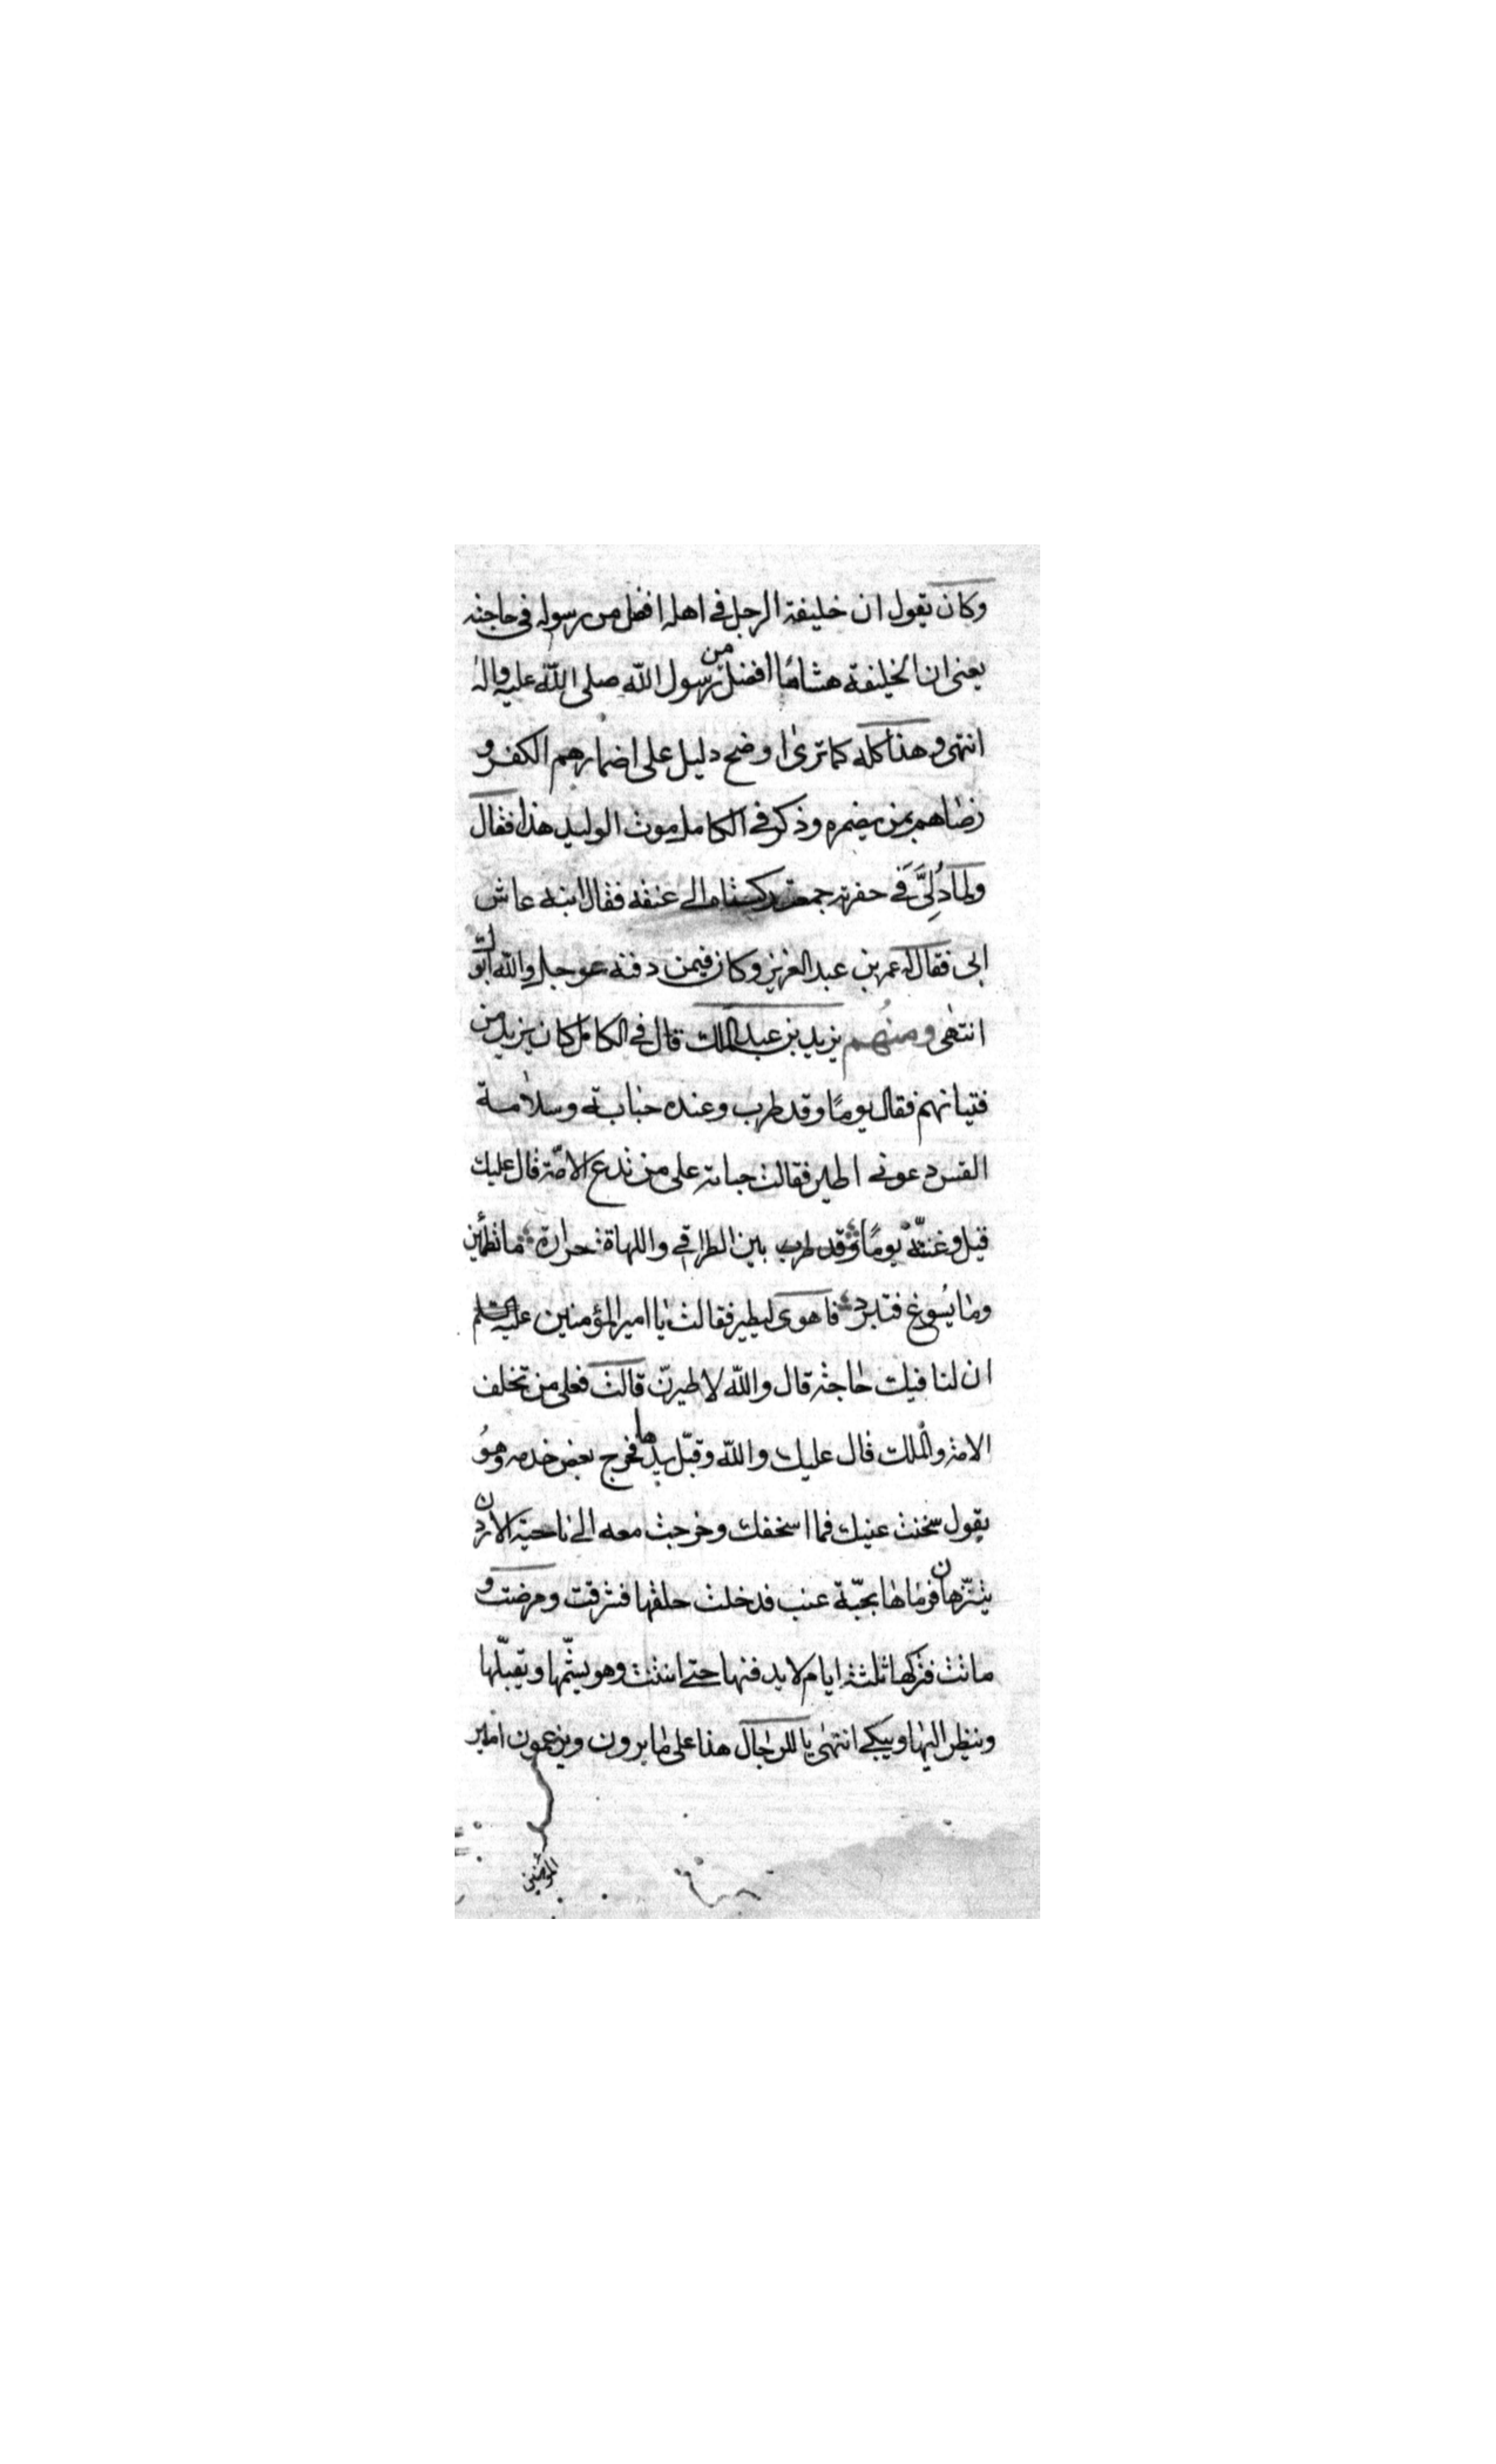 وكان يقول ان خليفة الرجل في اهله افضل من رسوله في حاجته
يعنى ان الخليفة هشامًا افضل من رسول الله صلى الله عليه واله
انتهى وهذا كله كما ترى اوضح دليل على اضمارهم الكفر و
رضاهم بمن يضمره وذكر في الكامل موت الوليد هذا فقال
ولما دُلِّىَ في حفرته جمعت ركبتاه الى عنقه فقال ابنه عاش
ابى فقال له عمر بن عبد العزيز وكان فيمن دفنه عوجل والله ابوك
انتهى ومنهم يزيد بن عبد الملك قال في الكامل كان يزيد من
فتيانهم فقال يومًا وقد طرب وعنده حبابة وسلامة
القس دعونى اطير فقالت حبابة على من تدع الامّة قال عليك
قيل وغنّته يومًا وقد طرب بين التراقي واللهاة حرارة ما تطمئن
وما يسوغ فتبرد فاهوى ليطير فقالت يا امير المؤمنين
ان لنا فيك حاجة قال والله لاطيرنّ قالت فعلى من تخلف
الامة والملك قال عليك والله وقبّل يدها فخرج بعض خدمه وهو
يقول سخنت عينك فما اسخفك وخرجت معه الى ناحية الاردن
يتنزّهان فرماها بحبّة عنب فدخلت حلقها فشرقت ومرضت و
ماتت فتركها ثلثة ايام لا يدفنها حتى انتنت وهو يشمّها ويقبّلها
وينظر اليها ويبكى انتهى يا للرجال هذا على ما يرون ويزعمون امير
المؤمنين